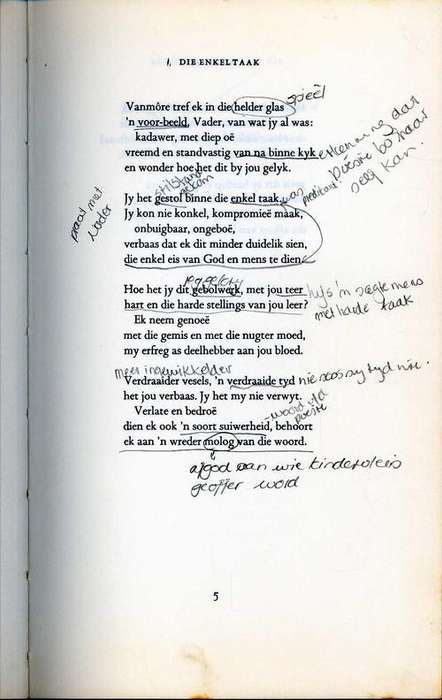 1. DIE ENKELTAAK
Vanmôre tref ek in die helder glas
spieël
'n voor-beeld, Vader, van wat jy al was:
kadawer, met diep oë
vreemd en standvastig van na binne kyk
erkenning dat
poësie bo haar
seg kan.
was
predikant.
en wonder hoe het dit by jou gelyk.
praat met
Vader
stilstaan
Jy het gestol binne die enkel taak.
Jy kon nie konkel, kompromieë maak,
onbuigbaar, ongeboë,
verbaas dat ek dit minder duidelik sien,
die enkel eis van God en mens te dien.
Hoe het jy dit gebolwerk, met jou teer
hart en die harde stellings van jou leer?
hy's 'n sagte mens
met harde taak
Ek neem genoeë
met die gemis en met die nugter moed,
my erfreg as deelhebber aan jou bloed.
meer ingewikkelder
Verdraaider vesels, 'n verdraaide tyd
nie soos sy tyd nie.
het jou verbaas. Jy het my nie verwyt.
Verlate en bedroë
- woord
poësie
dien ek ook 'n soort suiwerheid, behoort
ek aan 'n wreder molog van die woord.
afgod aan wie kindervleis
geoffer word
5